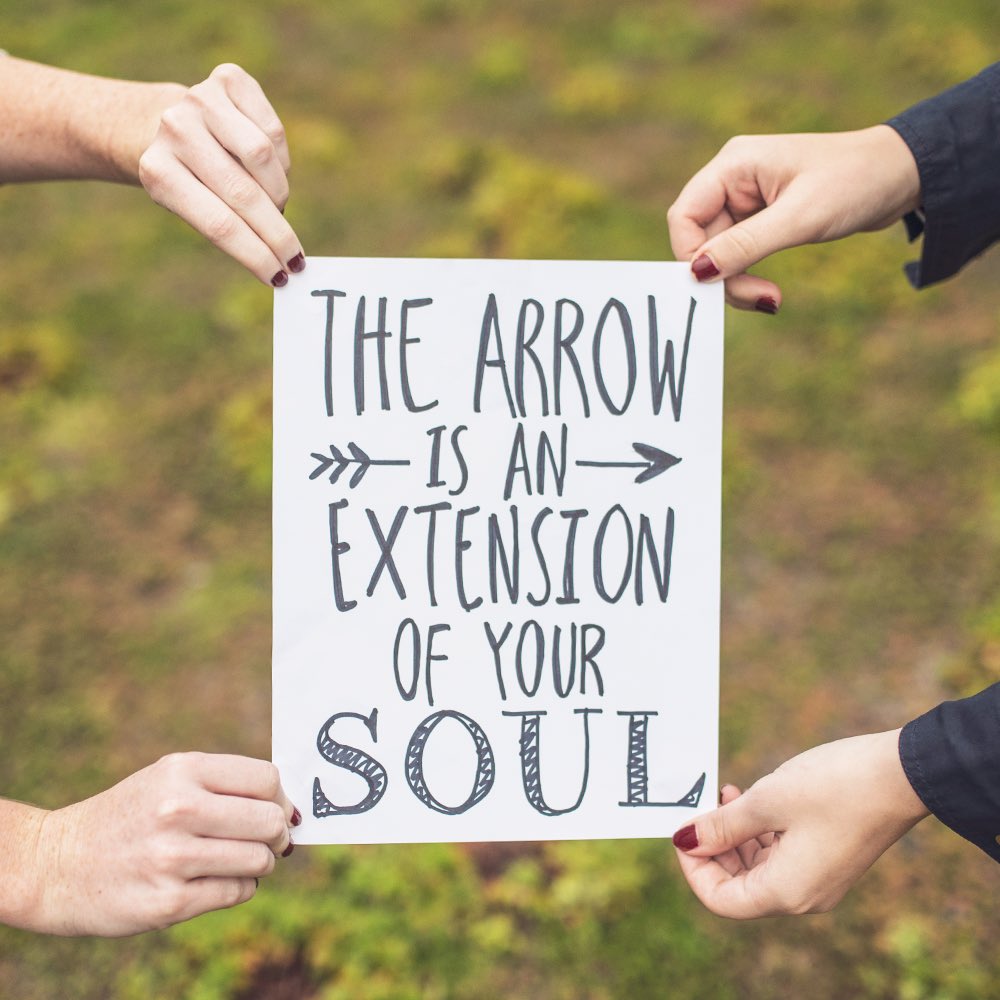 THE ARROW
IS AN
EXTENSION
OF YOUR
SOUL